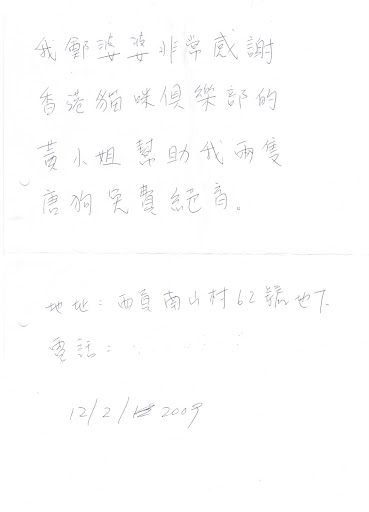 我鄭婆婆非常感謝
香港貓咪俱樂部的
黃小姐幫助我兩隻
唐狗免費絕育。
地址：西貢南山村62號地下
電話：
12/2/2009